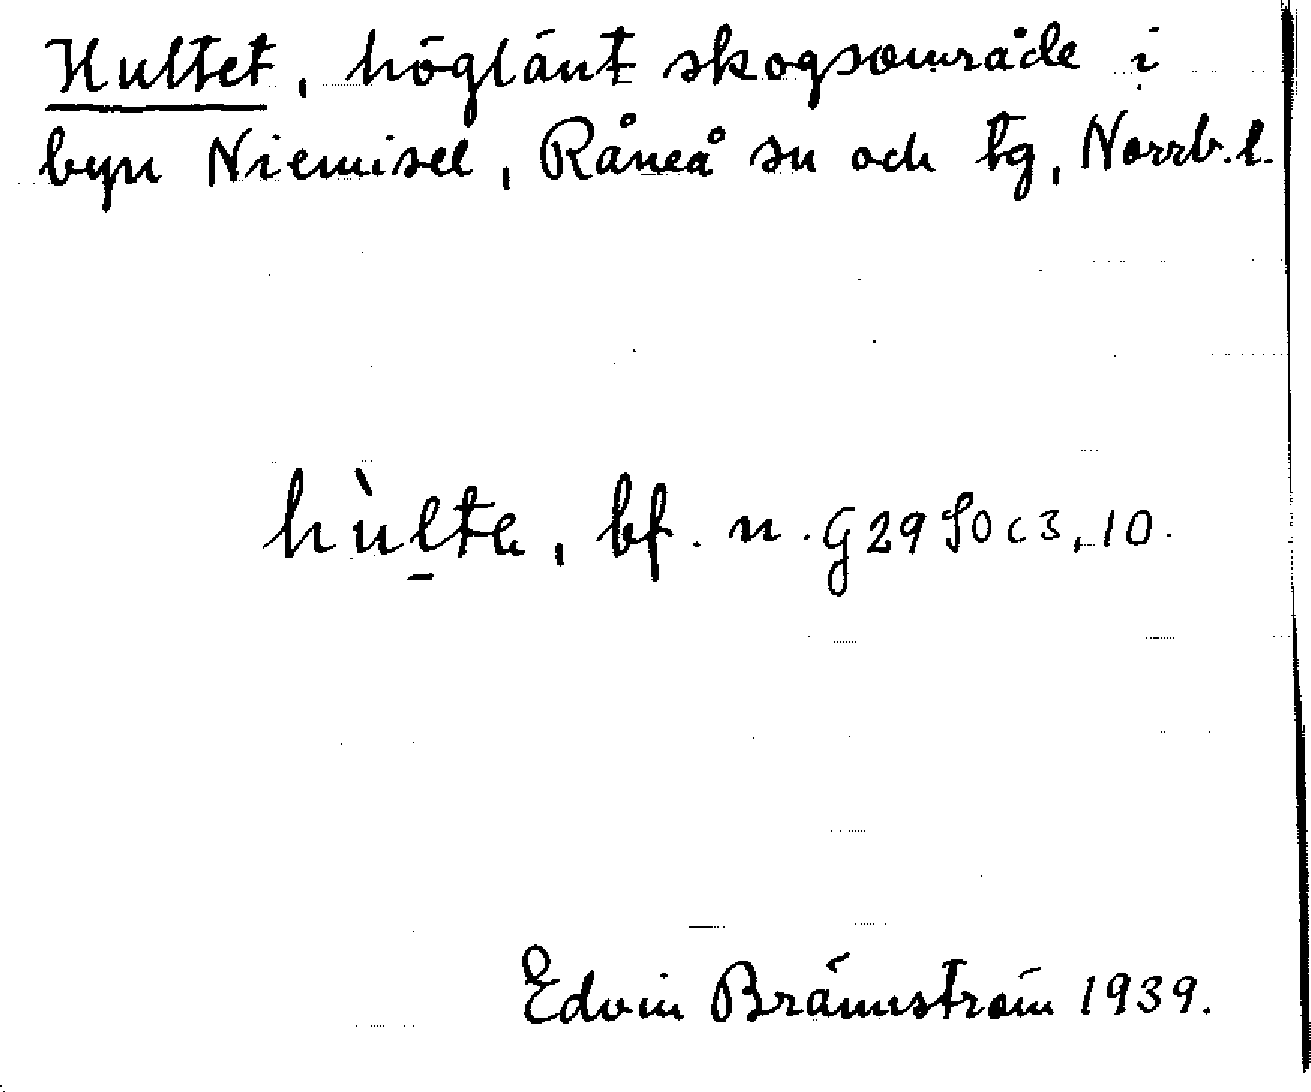 Hultet, höglänt skogsområde i
byn Niemisel, Råneå sn och tg, Norrb. l.
hùlta, bf. n. G 29 SO c 3, 10.
Edvin Brännström 1939.